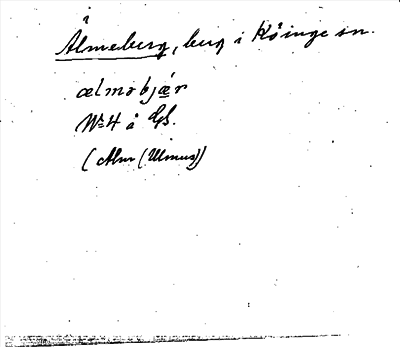 Älmeberg, berg i Köinge sn.
ælməbjær
N:4 å Gs.
(Alm (Ulmus))